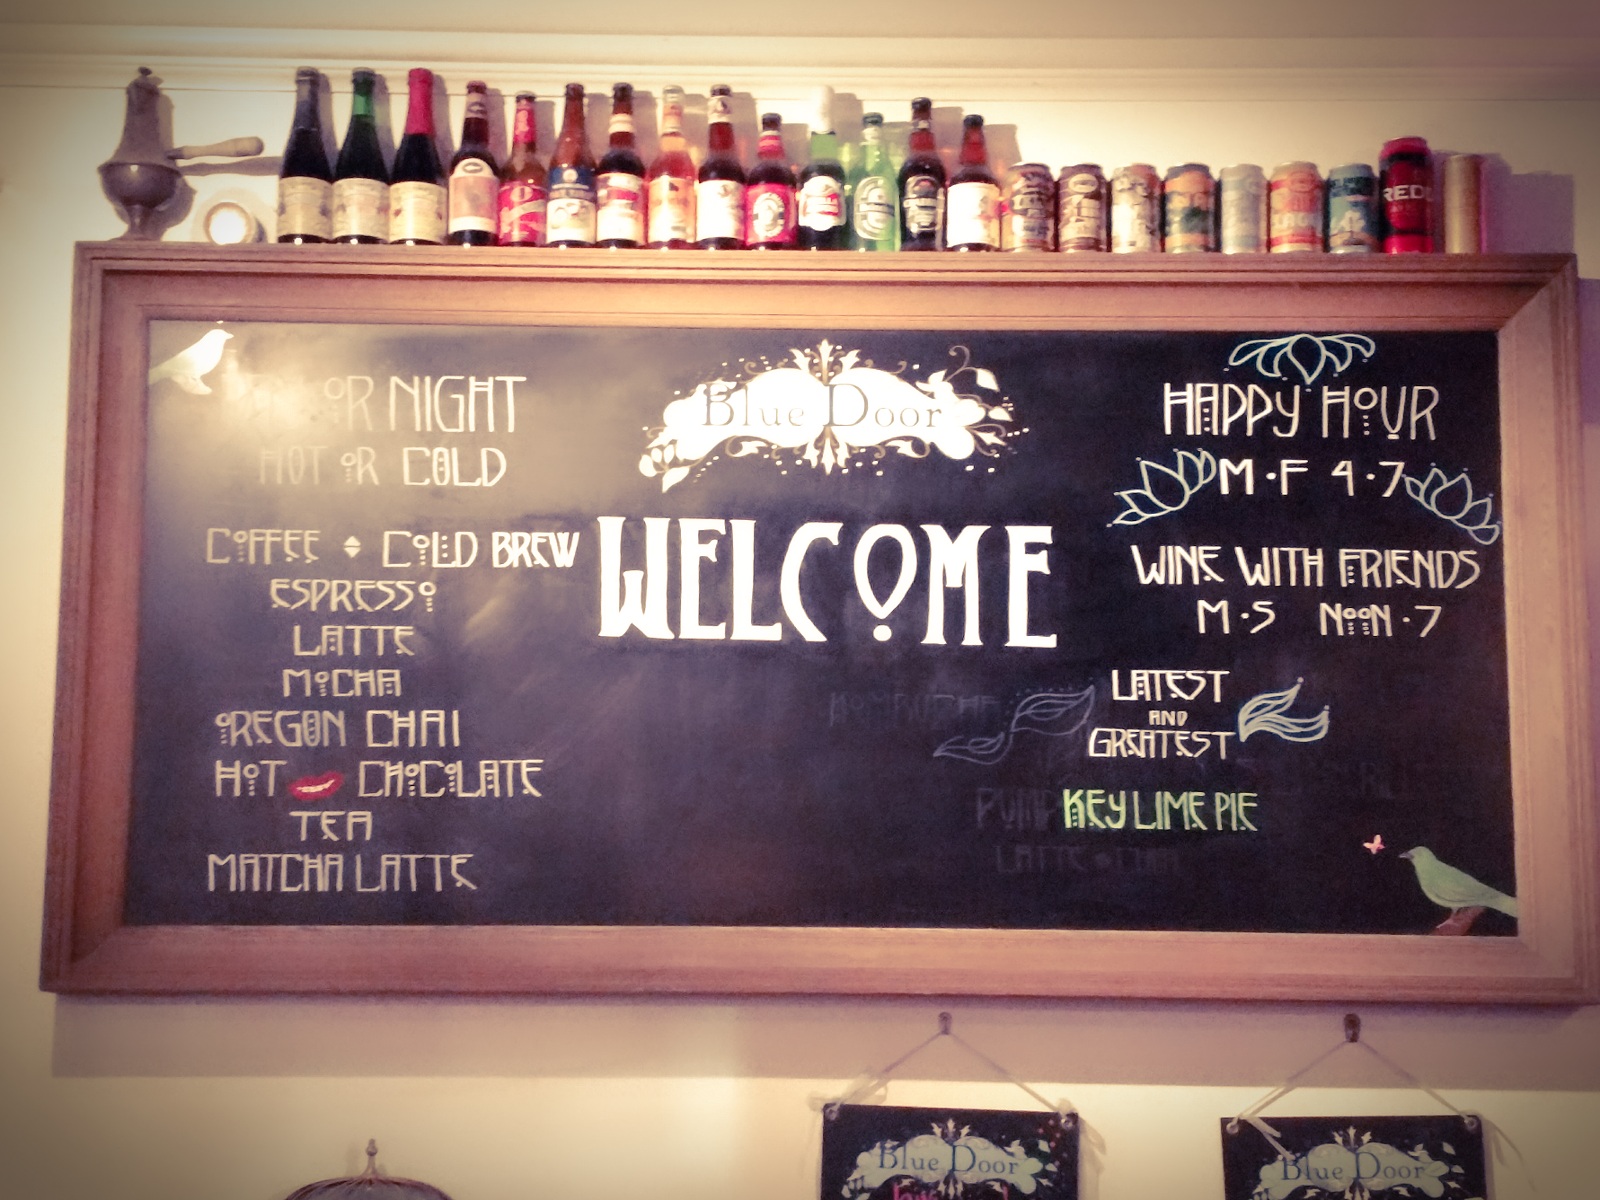 OR NIGHT
HOT OR COLD
COFFEE COLD BREW
ESPRESSO
LATTE
MOCHA
OREGON CHAI
HOT CHOCOLATE
TEA
MATCHA LATTE
Blue Door
WELCOME
HAPPY HOUR
M·F 4·7
WINE WITH FRIENDS
M·S NOON·7
LATEST
AND
GREATEST
KEY LIME PIE
LATTE
Blue Door
Blue Door